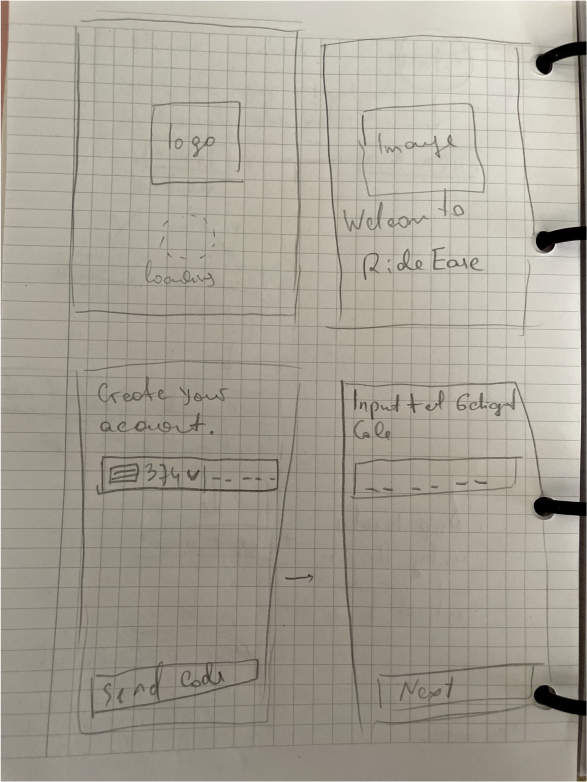 logo
loading
Image
Welcom to
RideEase
Create your
account.
374 v | -- ---
Send code
→
Input 6 digit
Code
-- -- --
Next